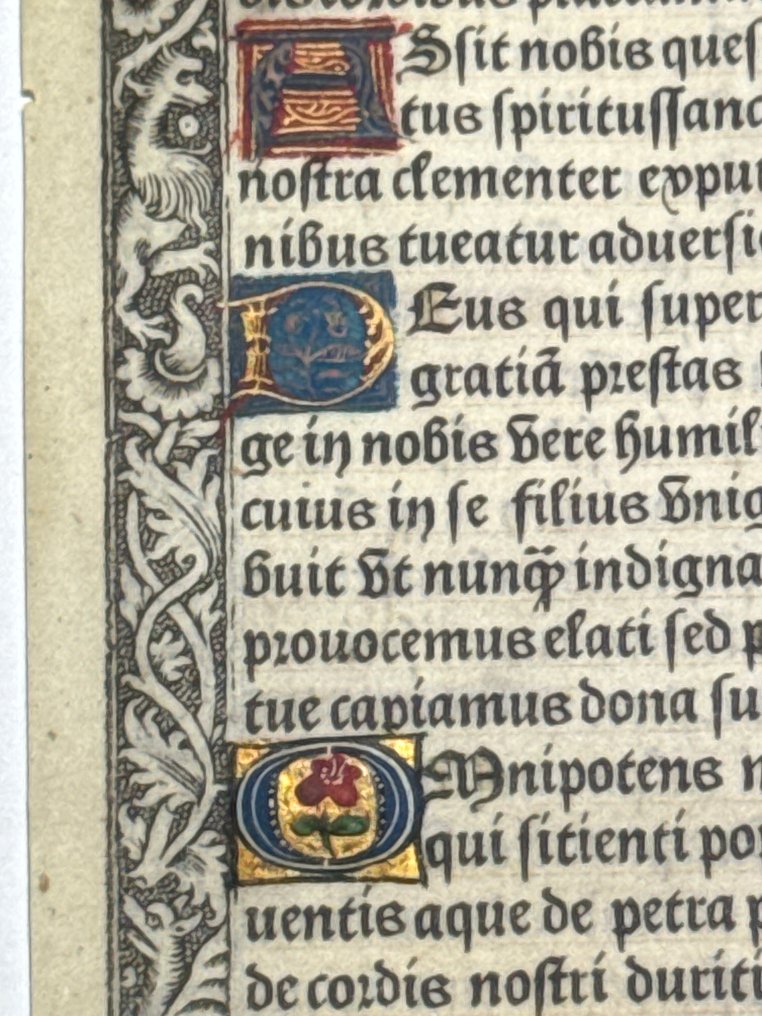 ASſit nobis queſ
tus ſpirituſſanc
noſtra clementer expu
nibus tueatur aduerſi
DEus qui ſuper
gratiã preſtas
ge in nobis vere humil
cuius in ſe filius vnig
buit vt nunq̃ indigna
prouocemus elati ſed p
tue capiamus dona ſu
OMnipotens
qui ſitienti po
uentis aque de petra p
de cordis noſtri duriti